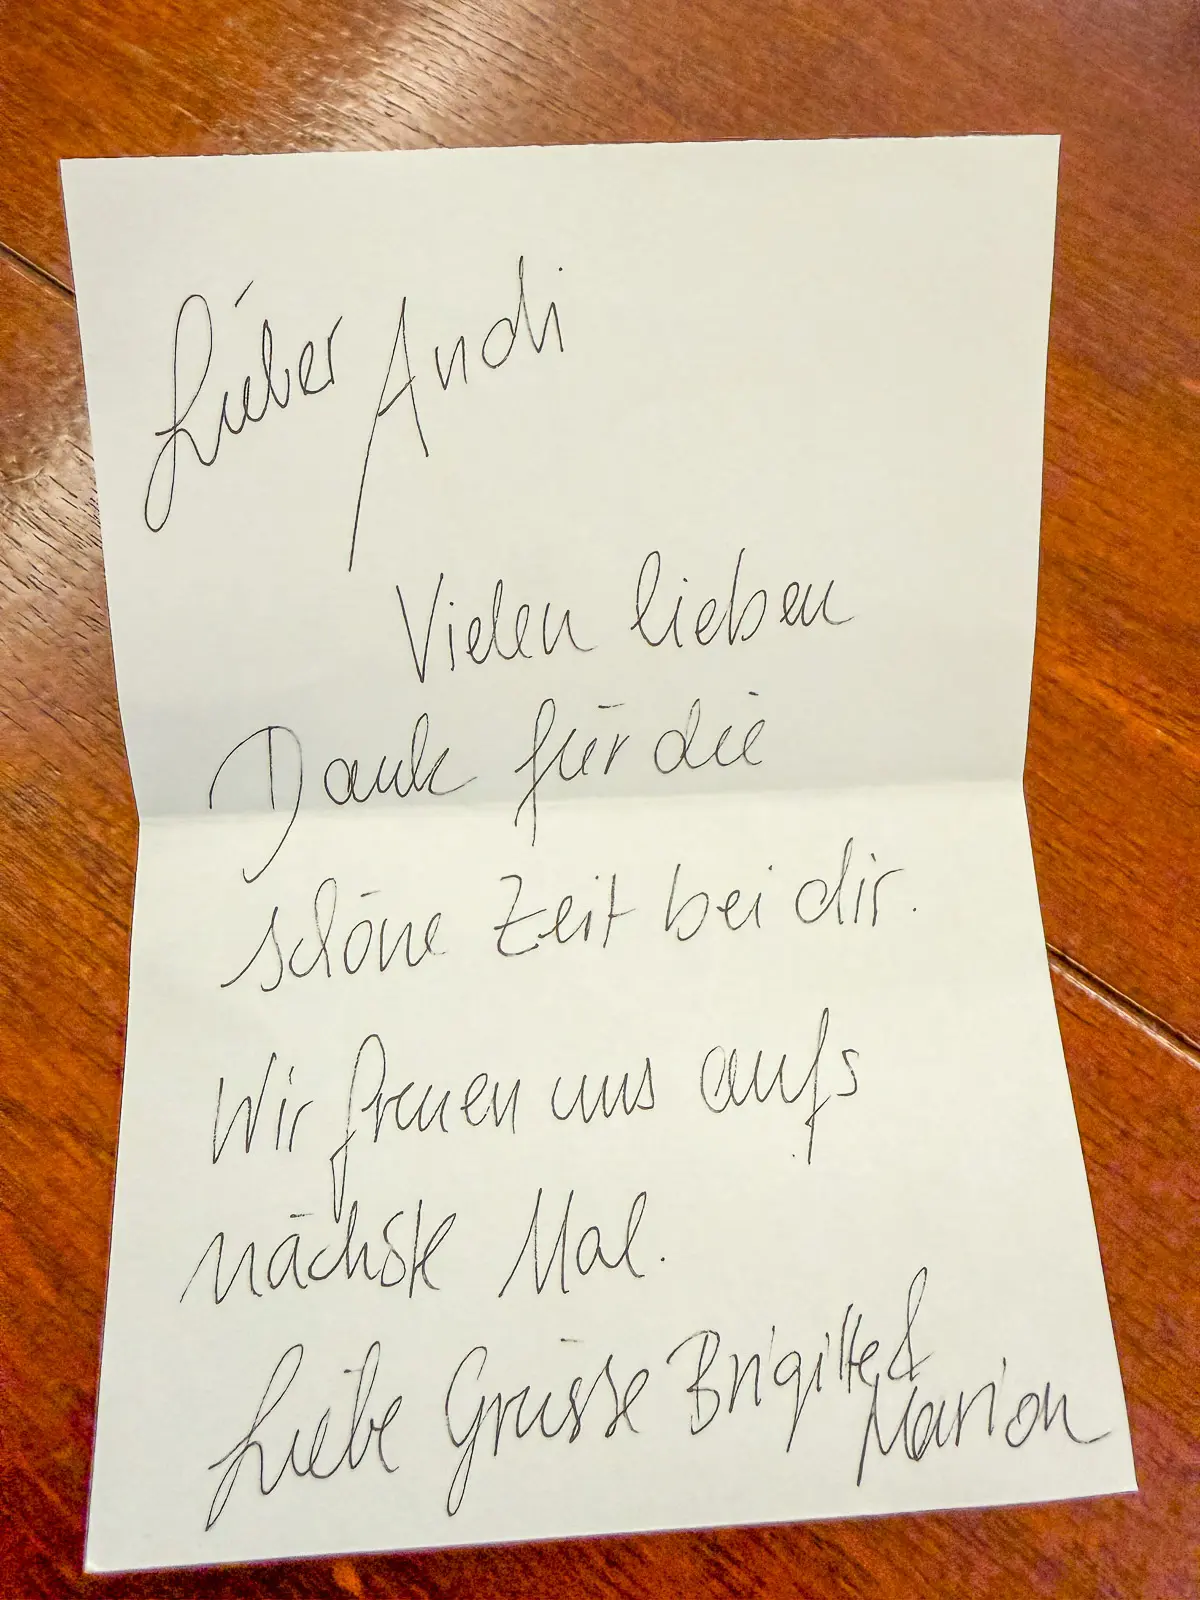 Lieber Andi
Vielen lieben
Dank für die
schöne Zeit bei dir.
Wir freuen uns aufs
nächste Mal.
Liebe Grüsse Brigitte &
Marion